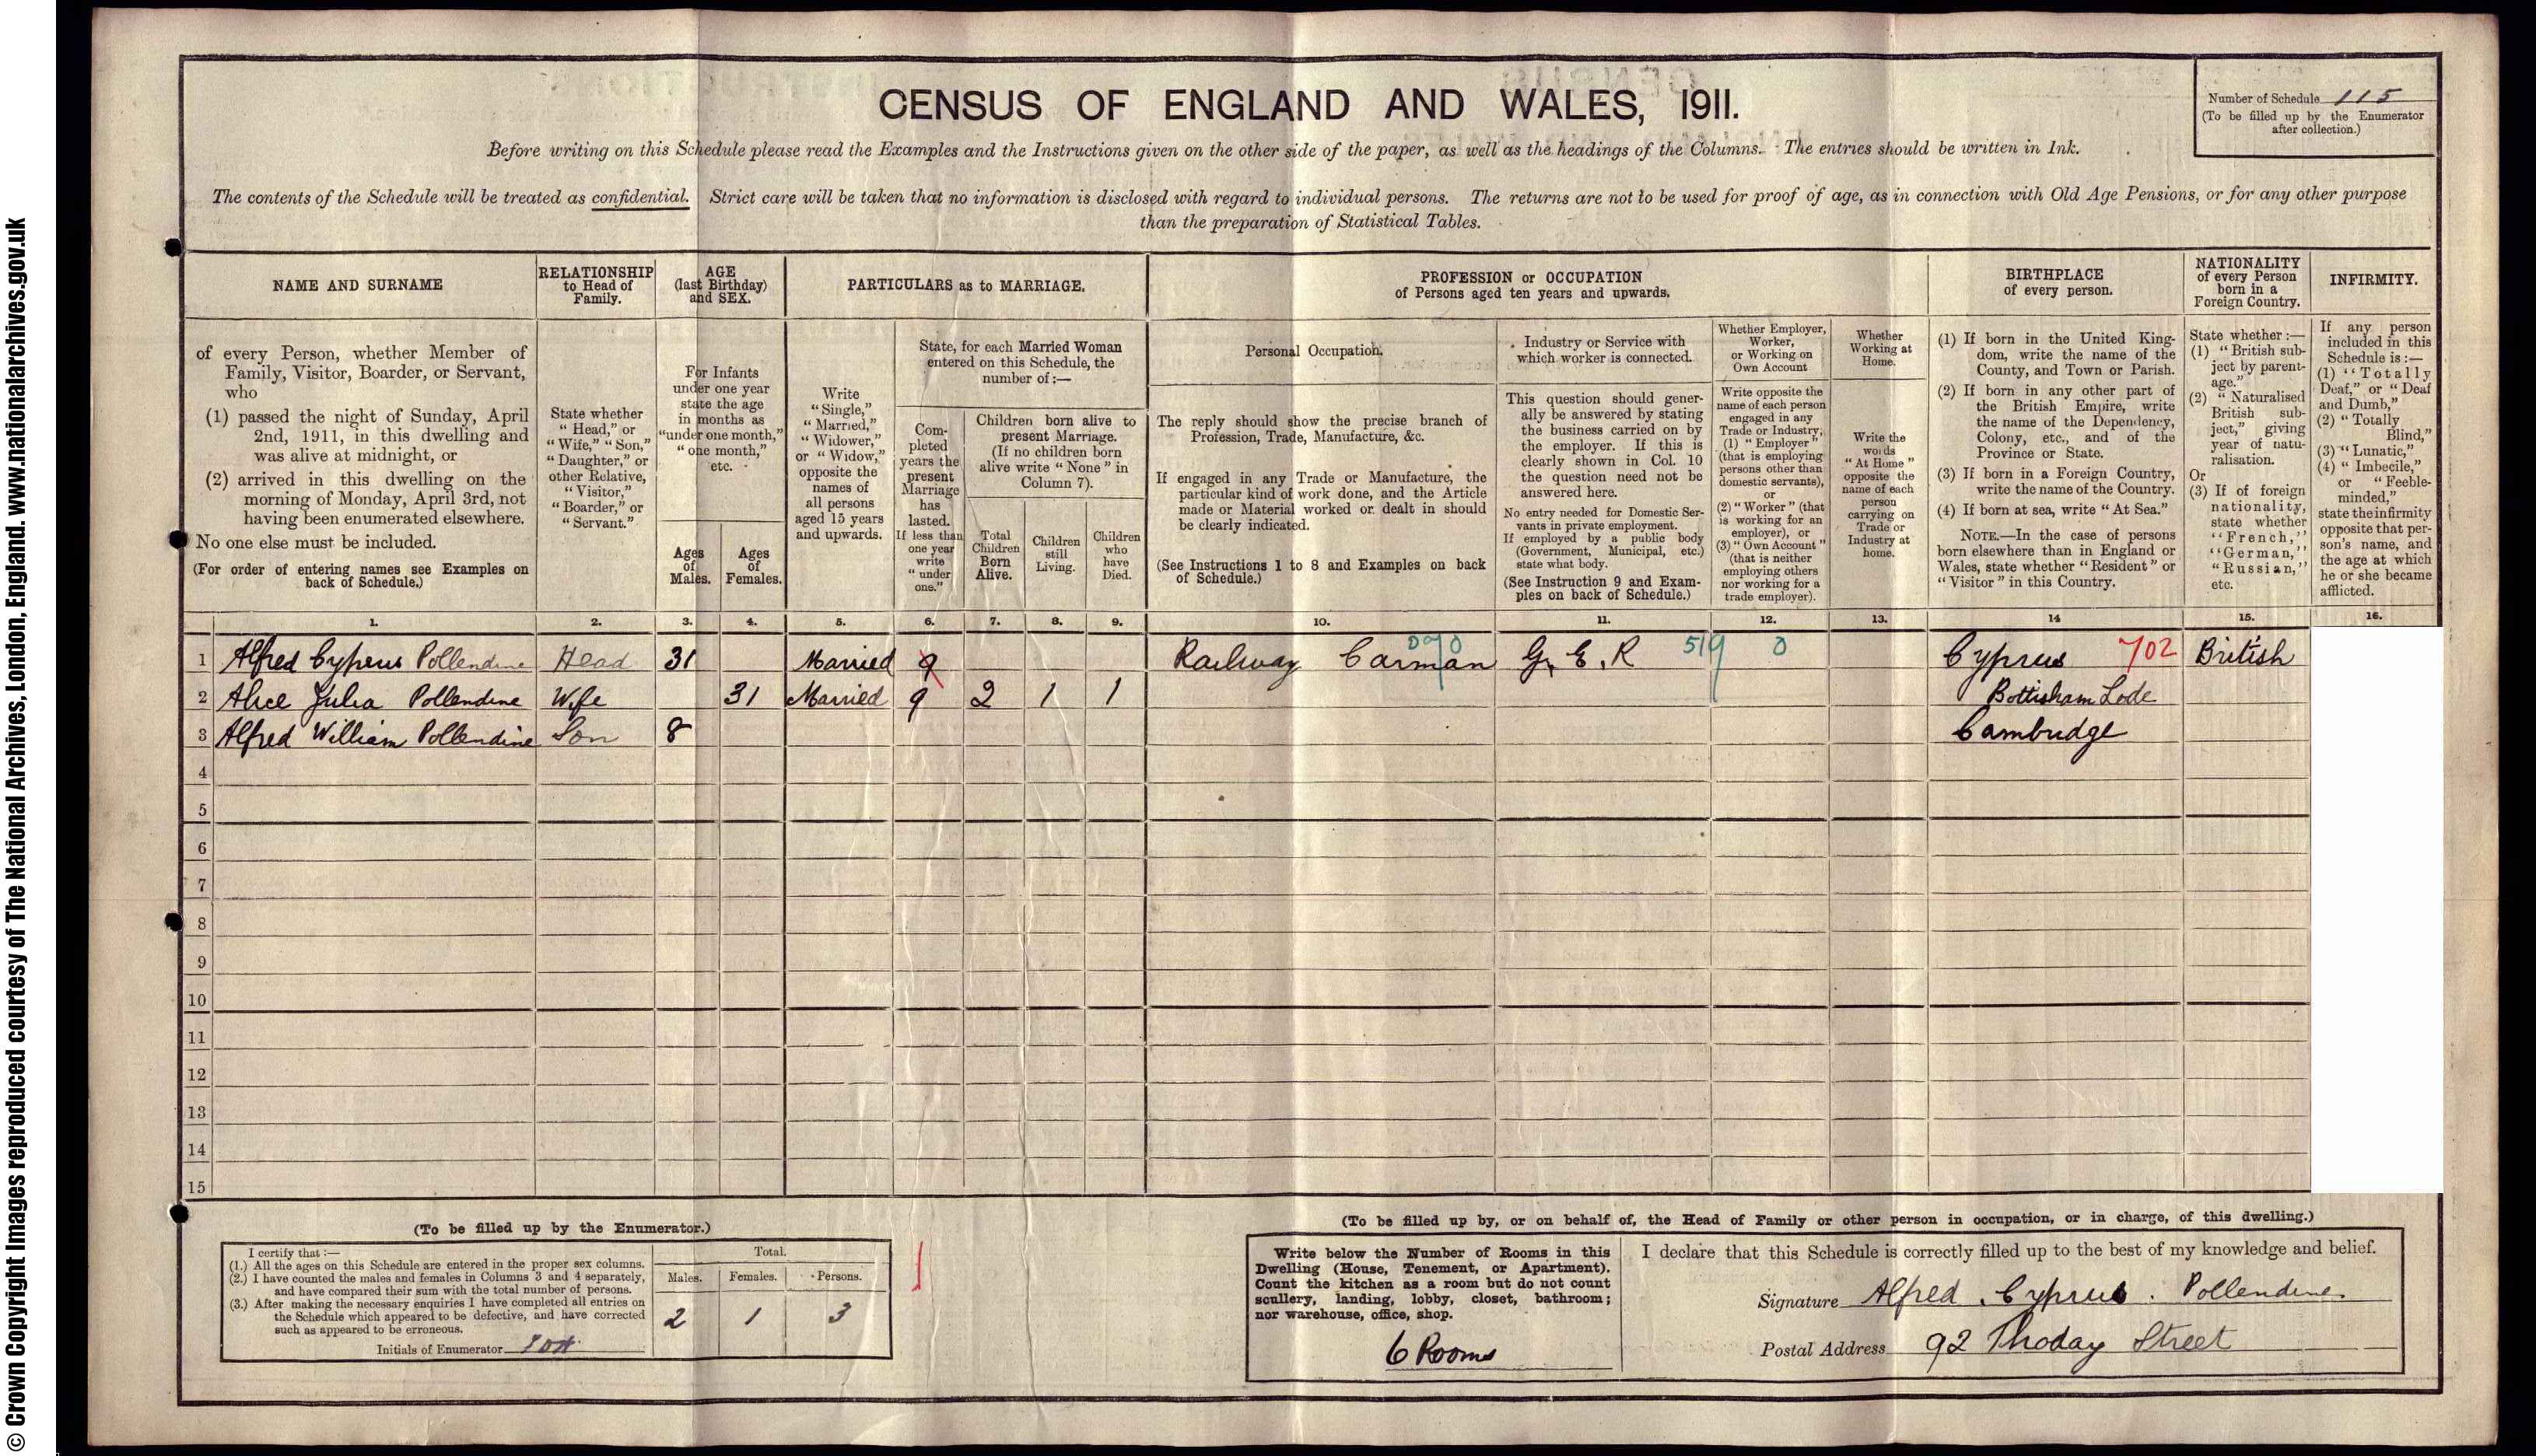 © Crown Copyright Images reproduced courtesy of The National Archives, London, England. www.nationalarchives.gov.uk
CENSUS OF ENGLAND AND WALES, 1911.
Number of Schedule 115
(To be filled up by the Enumerator
after collection.)
Before writing on this Schedule please read the Examples and the Instructions given on the other side of the paper, as well as the headings of the Columns. The entries should be written in Ink.
The contents of the Schedule will be treated as confidential. Strict care will be taken that no information is disclosed with regard to individual persons. The returns are not to be used for proof of age, as in connection with Old Age Pensions, or for any other purpose
than the preparation of Statistical Tables.
NAME AND SURNAME
of every Person, whether Member of
Family, Visitor, Boarder, or Servant,
who
(1) passed the night of Sunday, April
2nd, 1911, in this dwelling and
was alive at midnight, or
(2) arrived in this dwelling on the
morning of Monday, April 3rd, not
having been enumerated elsewhere.
No one else must be included.
(For order of entering names see Examples on
back of Schedule.)
RELATIONSHIP
to Head of
Family.
State whether
"Head," or
"Wife," "Son,"
"Daughter," or
other Relative,
"Visitor,"
"Boarder," or
"Servant."
AGE
(last Birthday)
and SEX.
For Infants
under one year
state the age
in months as
"under one month,"
"one month,"
etc.
Ages
of
Males.
Ages
of
Females.
PARTICULARS as to MARRIAGE.
Write
"Single,"
"Married,"
"Widower,"
or "Widow,"
opposite the
names of
all persons
aged 15 years
and upwards.
State, for each Married Woman
entered on this Schedule, the
number of:—
Com-
pleted
years the
present
Marriage
has
lasted.
If less than
one year
write
"under
one."
Children born alive to
present Marriage.
(If no children born
alive write "None" in
Column 7).
Total
Children
Born
Alive.
Children
still
Living.
Children
who
have
Died.
PROFESSION or OCCUPATION
of Persons aged ten years and upwards.
Personal Occupation.
The reply should show the precise branch of
Profession, Trade, Manufacture, &c.
If engaged in any Trade or Manufacture, the
particular kind of work done, and the Article
made or Material worked or dealt in should
be clearly indicated.
(See Instructions 1 to 8 and Examples on back
of Schedule.)
Industry or Service with
which worker is connected.
This question should gener-
ally be answered by stating
the business carried on by
the employer. If this is
clearly shown in Col. 10
the question need not be
answered here.
No entry needed for Domestic Ser-
vants in private employment.
If employed by a public body
(Government, Municipal, etc.)
state what body.
(See Instruction 9 and Exam-
ples on back of Schedule.)
Whether Employer,
Worker,
or Working on
Own Account
Write opposite the
name of each person
engaged in any
Trade or Industry,
(1) "Employer"
(that is employing
persons other than
domestic servants),
or
(2) "Worker" (that
is working for an
employer), or
(3) "Own Account"
(that is neither
employing others
nor working for a
trade employer).
Whether
Working at
Home.
Write the
words
"At Home"
opposite the
name of each
person
carrying on
Trade or
Industry at
home.
BIRTHPLACE
of every person.
(1) If born in the United King-
dom, write the name of the
County, and Town or Parish.
(2) If born in any other part of
the British Empire, write
the name of the Dependency,
Colony, etc., and of the
Province or State.
(3) If born in a Foreign Country,
write the name of the Country.
(4) If born at sea, write "At Sea."
NOTE.—In the case of persons
born elsewhere than in England or
Wales, state whether "Resident" or
"Visitor" in this Country.
NATIONALITY
of every Person
born in a
Foreign Country.
State whether:—
(1) "British sub-
ject by parent-
age."
(2) "Naturalised
British sub-
ject," giving
year of natu-
ralisation.
Or
(3) If of foreign
nationality,
state whether
"French,"
"German,"
"Russian,"
etc.
INFIRMITY.
If any person
included in this
Schedule is:—
(1) "Totally
Deaf," or "Deaf
and Dumb,"
(2) "Totally
Blind,"
(3) "Lunatic,"
(4) "Imbecile,"
or "Feeble-
minded,"
state the infirmity
opposite that per-
son's name, and
the age at which
he or she became
afflicted.
1. 2. 3. 4. 5. 6. 7. 8. 9. 10. 11. 12. 13. 14 15. 16.
1 Alfred Cyprus Pollendine Head 31 Married 9 Railway Carman G.E.R 519 0 Cyprus 702 British
2 Alice Julia Pollendine Wife 31 Married 9 2 1 1 Bottisham Lode
3 Alfred William Pollendine Son 8 Cambridge
4
5
6
7
8
9
10
11
12
13
14
15
(To be filled up by the Enumerator.)
I certify that:—
(1.) All the ages on this Schedule are entered in the proper sex columns.
(2.) I have counted the males and females in Columns 3 and 4 separately,
and have compared their sum with the total number of persons.
(3.) After making the necessary enquiries I have completed all entries on
the Schedule which appeared to be defective, and have corrected
such as appeared to be erroneous.
Initials of Enumerator
Total.
Males. Females. Persons.
2 1 3
(To be filled up by, or on behalf of, the Head of Family or other person in occupation, or in charge, of this dwelling.)
Write below the Number of Rooms in this
Dwelling (House, Tenement, or Apartment).
Count the kitchen as a room but do not count
scullery, landing, lobby, closet, bathroom;
nor warehouse, office, shop.
6 Rooms
I declare that this Schedule is correctly filled up to the best of my knowledge and belief.
Signature Alfred Cyprus Pollendine
Postal Address 92 Thoday Street